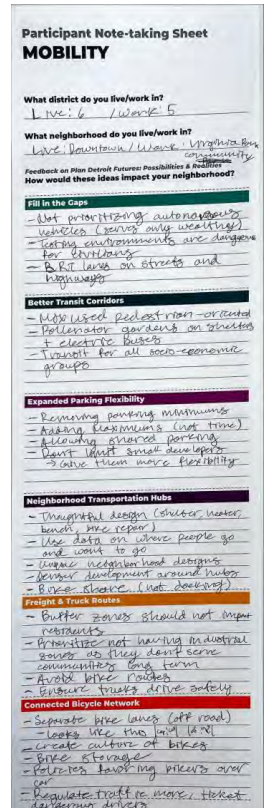 Participant Note-taking Sheet
MOBILITY
What district do you live/work in?
Live: 6 / work: 5
What neighborhood do you live/work in?
Live: Downtown / Work: Virginia Park
community
Feedback on Plan Detroit Futures: Possibilities & Realities
How would these ideas impact your neighborhood?
Fill in the Gaps
- Not prioritizing autonomous
vehicles (serves only wealthy)
- Testing environments are dangerous
for civilians
- BRT lanes on streets and
highways
Better Transit Corridors
- Mixed used pedestrian-oriented
- Pollenator gardens on shelters
+ electric buses
- Transit for all socio-economic
groups
Expanded Parking Flexibility
- Removing parking minimums
- Adding Maximums (not time)
- Allowing shared parking
- Don't limit small developers
→ Give them more flexibility
Neighborhood Transportation Hubs
- Thoughtful design (shelter, heater,
bench, bike repair)
- Use data on where people go
and want to go
- Unique neighborhood designs
- Denser development around hubs
- Bike share (not docking)
Freight & Truck Routes
- Buffer zones should not impact
residents
- Prioritize not having industrial
zones as they don't serve
communities long term
- Avoid bike routes
- Ensure trucks drive safely
Connected Bicycle Network
- Separate bike lanes (off road)
- looks like this
- Create culture of bikes
- Bike storage
- Policies favoring bikers over
car
- Regulate traffic more, ticket
dangerous drivers